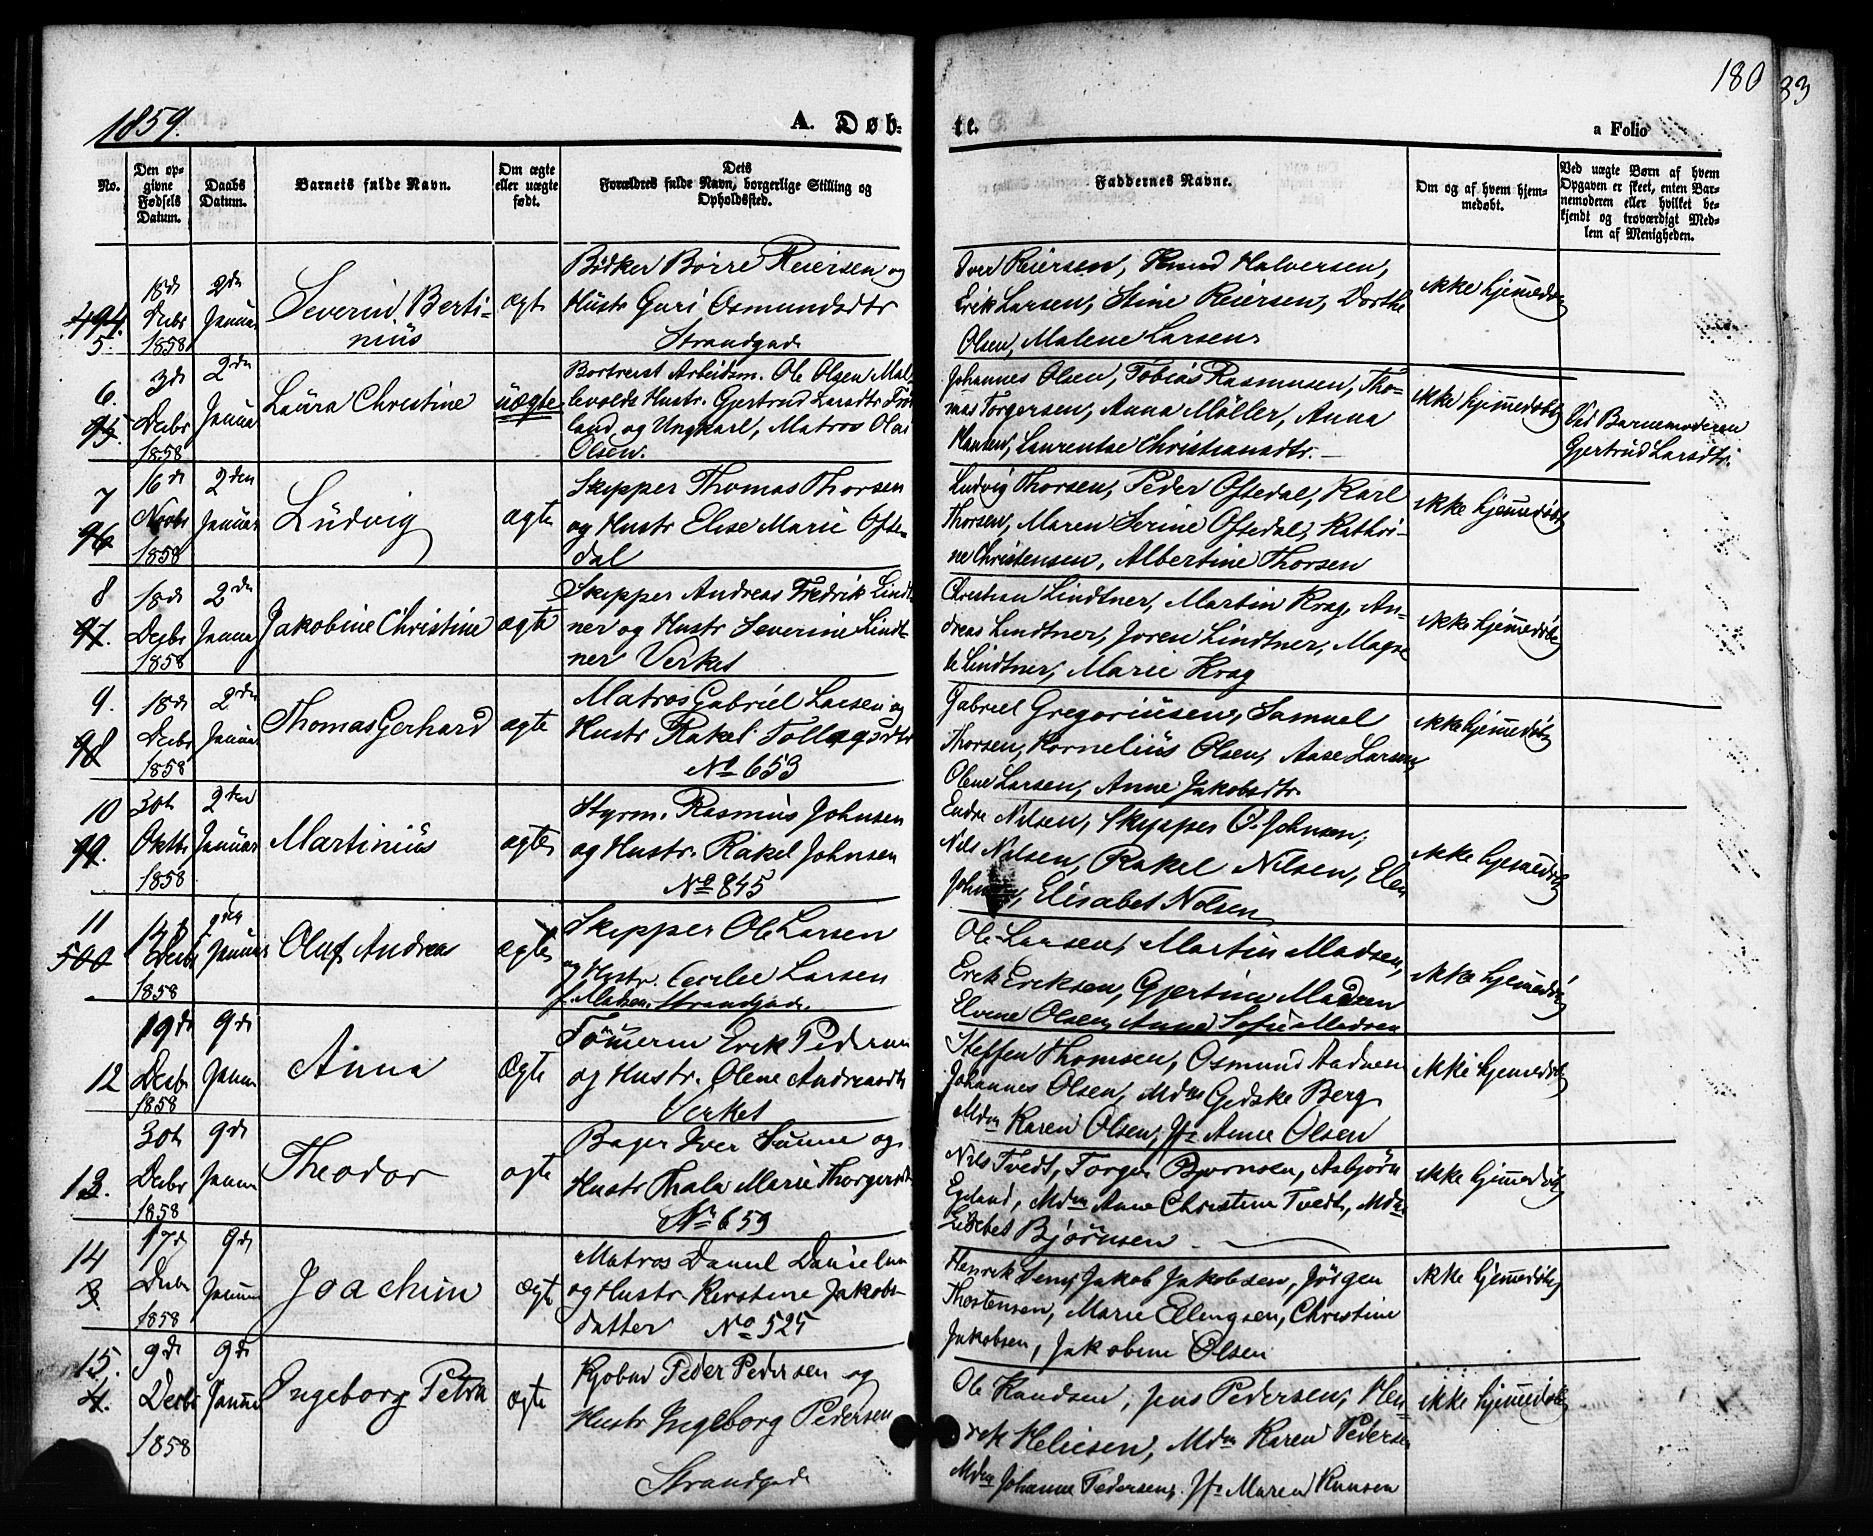 1859.
A. Døb-
te.
a Folio
180
83
No.
Den op-
givne
Fødsels
Datum.
Daabs
Datum.
Barnets fulde Navn.
Om ægte
eller uægte
født.
Dets
Forældres fulde Navn, borgerlige Stilling og
Opholdssted.
Faddernes Navne.
Om og af hvem hjem-
medøbt.
Ved uægte Børn af hvem
Opgaven er skeet, enten Bar-
nemoderen eller hvilket be-
kjendt og troværdigt Med-
lem af Menigheden.
494.
5
18de
Decbr
1858
2den
Januar
Severin Berti-
nius
ægte
Bødker Børre Reiersen og
Hustr Guri Osmundsdtr
Strandgade
Iver Reiersen, Knud Halversen,
Erik Larsen, Stine Reiersen, Dorthe
Olsen, Malene Larsen
ikke hjemmedøbt
6.
95
3de
Decbr
1858
2den
Januar
Laura Christine
uægte
Bortreist Arbeidsm. Ole Olsen Mal-
levolds Hustr. Gjertrud Larsdtr
land og Ungkarl, Matros Olai
Olsen.
Johannes Olsen, Tobias Rasmusen, Tho-
mas Torgersen, Anna Møller, Anna
Hansen, Laurentse Christiansdtr.
ikke hjemmedøbt
Ved Barnemoderen
Gjertrud Larsdtr.
7
96
16de
Novbr
1858
2den
Januar
Ludvig
ægte
Skipper Thomas Thorsen
og Hustr Elise Marie Ofte-
dal
Ludvig Thorsen, Peder Oftedal, Karl
Thorsen, Maren Serine Oftedal, Kathri-
ne Christensen, Albertine Thorsen
ikke hjemmedøbt
8
97.
18de
Decbr
1858
2den
Januar
Jakobine Christine
ægte
Skipper Andreas Fredrik Lindt-
ner og Hustr Severine Lindt-
ner Verket
Christian Lindtner, Martin Krag, An-
dreas Lindtner, Joren Lindtner, Magre-
te Lindtner, Marie Krag
ikke hjemmedøbt
9.
98
18de
Decbr
1858
2den
Januar
Thomas Gerhard
ægte
Matros Gabriel Larsen og
Hustr Rakel Tollagsdtr
No 653
Gabriel Gregoriusen, Samuel
Thorsen, Kornelius Olsen, Aase Larsen,
Olene Larsen, Anne Jakobsdtr
ikke hjemmedøbt
10
99.
30te
Oktbr
1858
2den
Januar
Martinius
ægte
Styrm. Rasmus Johnsen
og Hustr. Rakel Johnsen
No 845
Endre Nilsen, Skipper O. Johnsen,
Nils Nilsen, Rakel Nilsen, Elen
Johnsen, Elisabet Nilsen
ikke hjemmedøbt
11
500
Decbr
1858
Januar
Oluf Andreas
ægte
Skipper Ole Larsen
og Hustr. Cecilie Larsen
f. Madsen. Strandgade.
Ole Larsen, Martin Madsen,
Erik Eriksen, Gjertine Madsen
Elvine Olsen, Anne Sofie Madsen
ikke hjemmedøbt
12
19de
Decbr
1858
9de
Januar
Anna
Ægte
Tømerm Erik Pedersen
og Hustr. Olene Andreasdtr
Verket
Steffen Thomsen, Osmund Aadnesen
Johannes Olsen, Mdm Gedske Berg
Mdm Karen Olsen, Jfr Anne Olsen
ikke hjemmedøbt
13.
30te
Decbr
1858
9de
Januar
Theodor
ægte
Bager Iver Sunne og
Hustr Thala Marie Thorgersdtr
No 659
Nils Tvedt, Torger Bjørnsen, Asbjørn
Egeland, Mdm Anne Christine Tvedt, Mdm
Lisebet Bjørnsen
ikke hjemmedøbt
14
3.
17de
Decbr
1858
9de
Januar
Joachim
Ægte
Matros Daniel Danielsen
og Hustr Kirstine Jakobs-
datter No 525
Henrik Sem, Jakob Jakobsen, Jørgen
Thorstensen, Marie Ellingsen, Christine
Jakobsen, Jakobine Olsen
ikke hjemmedøbt
15.
4.
9de
Decbr
1858
9de
Januar
Ingeborg Petra
ægte
Peder Pedersen og
Hustr Ingeborg Pedersen
Strandgade
Ole Knudsen, Jens Pedersen, Hen-
rik Heliesen, Mdm Karen Pedersen
Mdm Johanne Pedersen, Jfr Maren Knusen
ikke hjemmedøbt